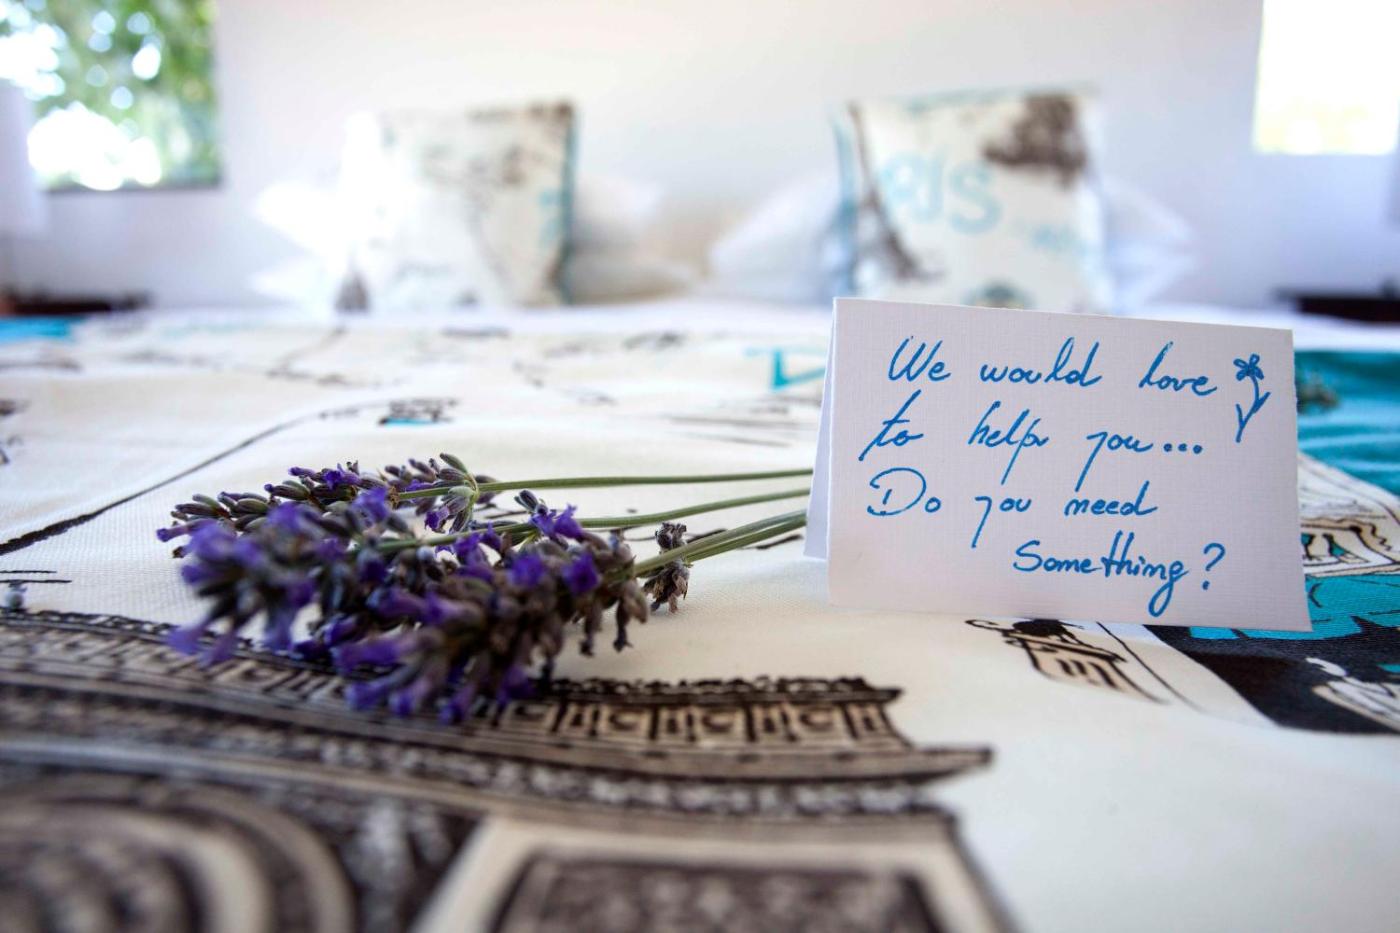 We would love
to help you...
Do you need
Something?